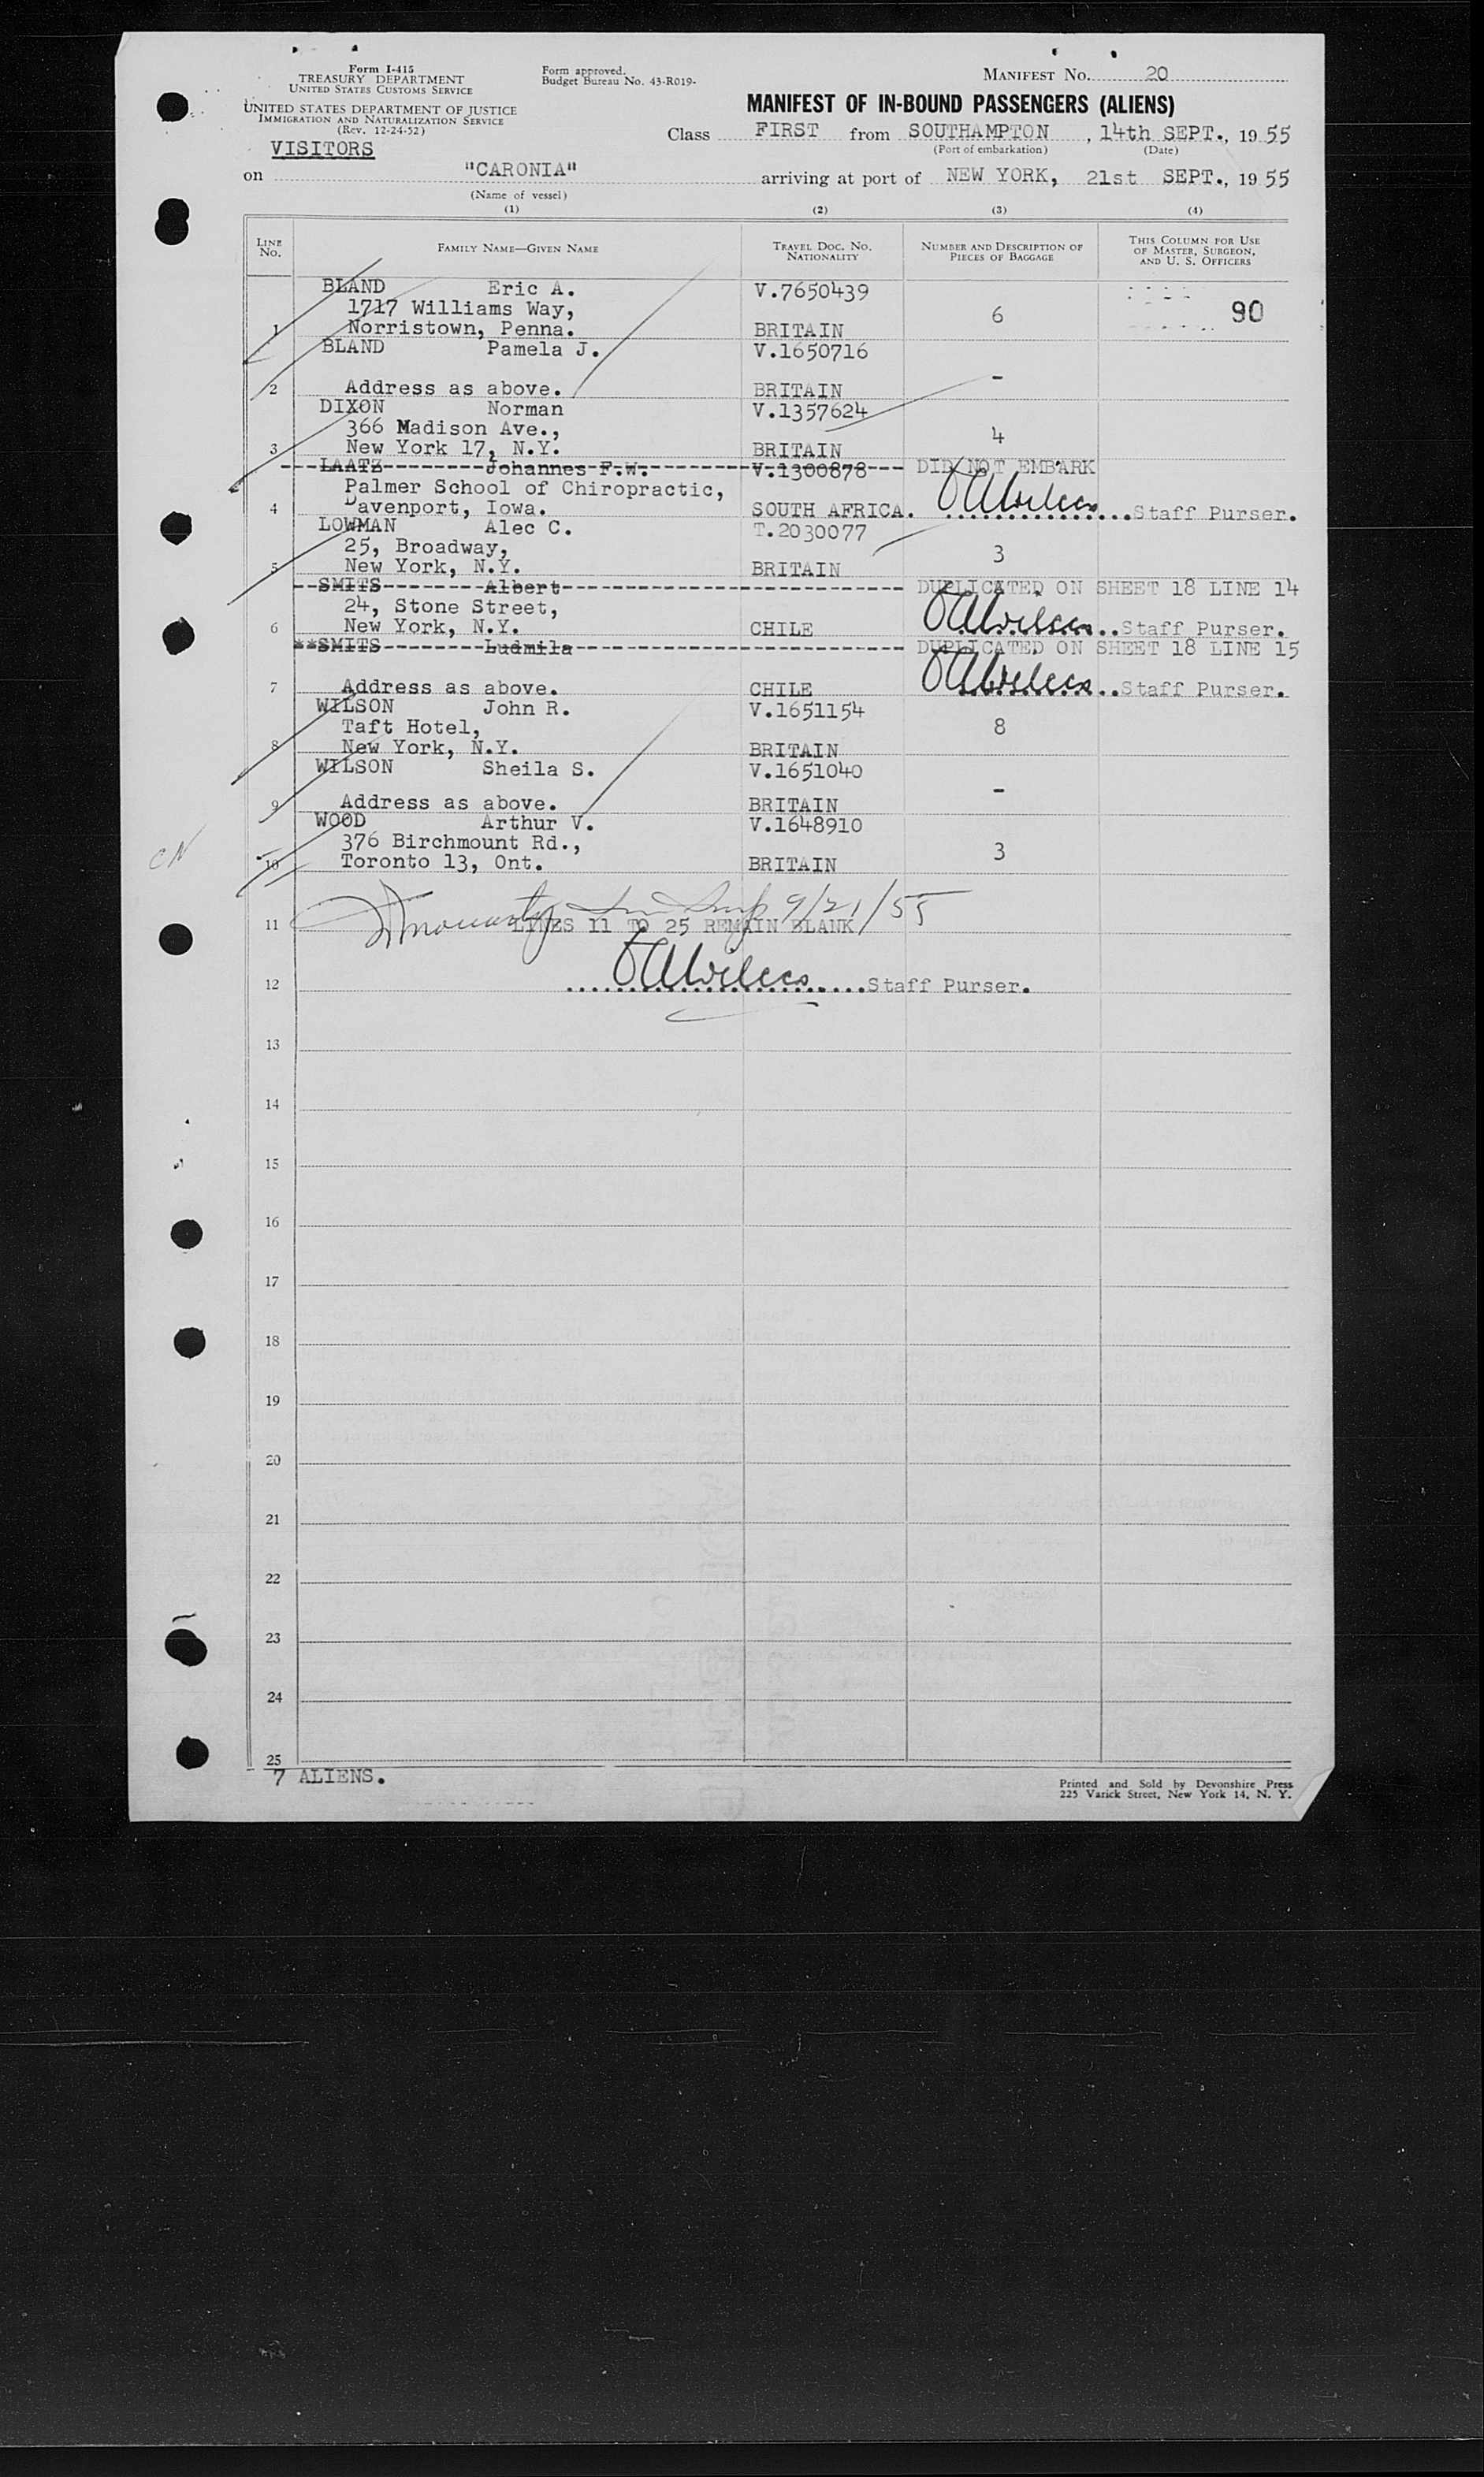 Form I-415
TREASURY DEPARTMENT
UNITED STATES CUSTOMS SERVICE
UNITED STATES DEPARTMENT OF JUSTICE
IMMIGRATION AND NATURALIZATION SERVICE
(Rev. 12-24-52)
Form approved.
Budget Bureau No. 43-R019-
MANIFEST NO. 20
MANIFEST OF IN-BOUND PASSENGERS (ALIENS)
Class FIRST from SOUTHAMPTON, 14th SEPT., 1955
(Port of embarkation) (Date)
VISITORS
on "CARONIA" arriving at port of NEW YORK, 21st SEPT., 1955
(Name of vessel)
(1) (2) (3) (4)
LINE NO. FAMILY NAME—GIVEN NAME TRAVEL DOC. NO. NATIONALITY NUMBER AND DESCRIPTION OF PIECES OF BAGGAGE THIS COLUMN FOR USE OF MASTER, SURGEON, AND U. S. OFFICERS
BLAND Eric A. V.7650439
1717 Williams Way, 6 90
1 Norristown, Penna. BRITAIN
BLAND Pamela J. V.1650716
-
2 Address as above. BRITAIN
DIXON Norman V.1357624
366 Madison Ave., 4
3 New York 17, N.Y. BRITAIN
---LAATZ--------Johannes F.W.--------V.1300878--- DID NOT EMBARK
Palmer School of Chiropractic,
4 Davenport, Iowa. SOUTH AFRICA. ...Staff Purser.
LOWMAN Alec C. T.2030077
25, Broadway, 3
5 New York, N.Y. BRITAIN
--SMITS--------Albert-------- DUPLICATED ON SHEET 18 LINE 14
24, Stone Street,
6 New York, N.Y. CHILE ..Staff Purser.
**SMITS--------Ludmila-------- DUPLICATED ON SHEET 18 LINE 15
7 Address as above. CHILE ..Staff Purser.
WILSON John R. V.1651154
Taft Hotel, 8
8 New York, N.Y. BRITAIN
WILSON Sheila S. V.1651040
-
9 Address as above. BRITAIN
WOOD Arthur V. V.1648910
376 Birchmount Rd., 3
CN
10 Toronto 13, Ont. BRITAIN
9/21/55
11 LINES 11 TO 25 REMAIN BLANK
12 ......Staff Purser.
13
14
15
16
17
18
19
20
21
22
23
24
25
7 ALIENS.
Printed and Sold by Devonshire Press
225 Varick Street, New York 14, N. Y.